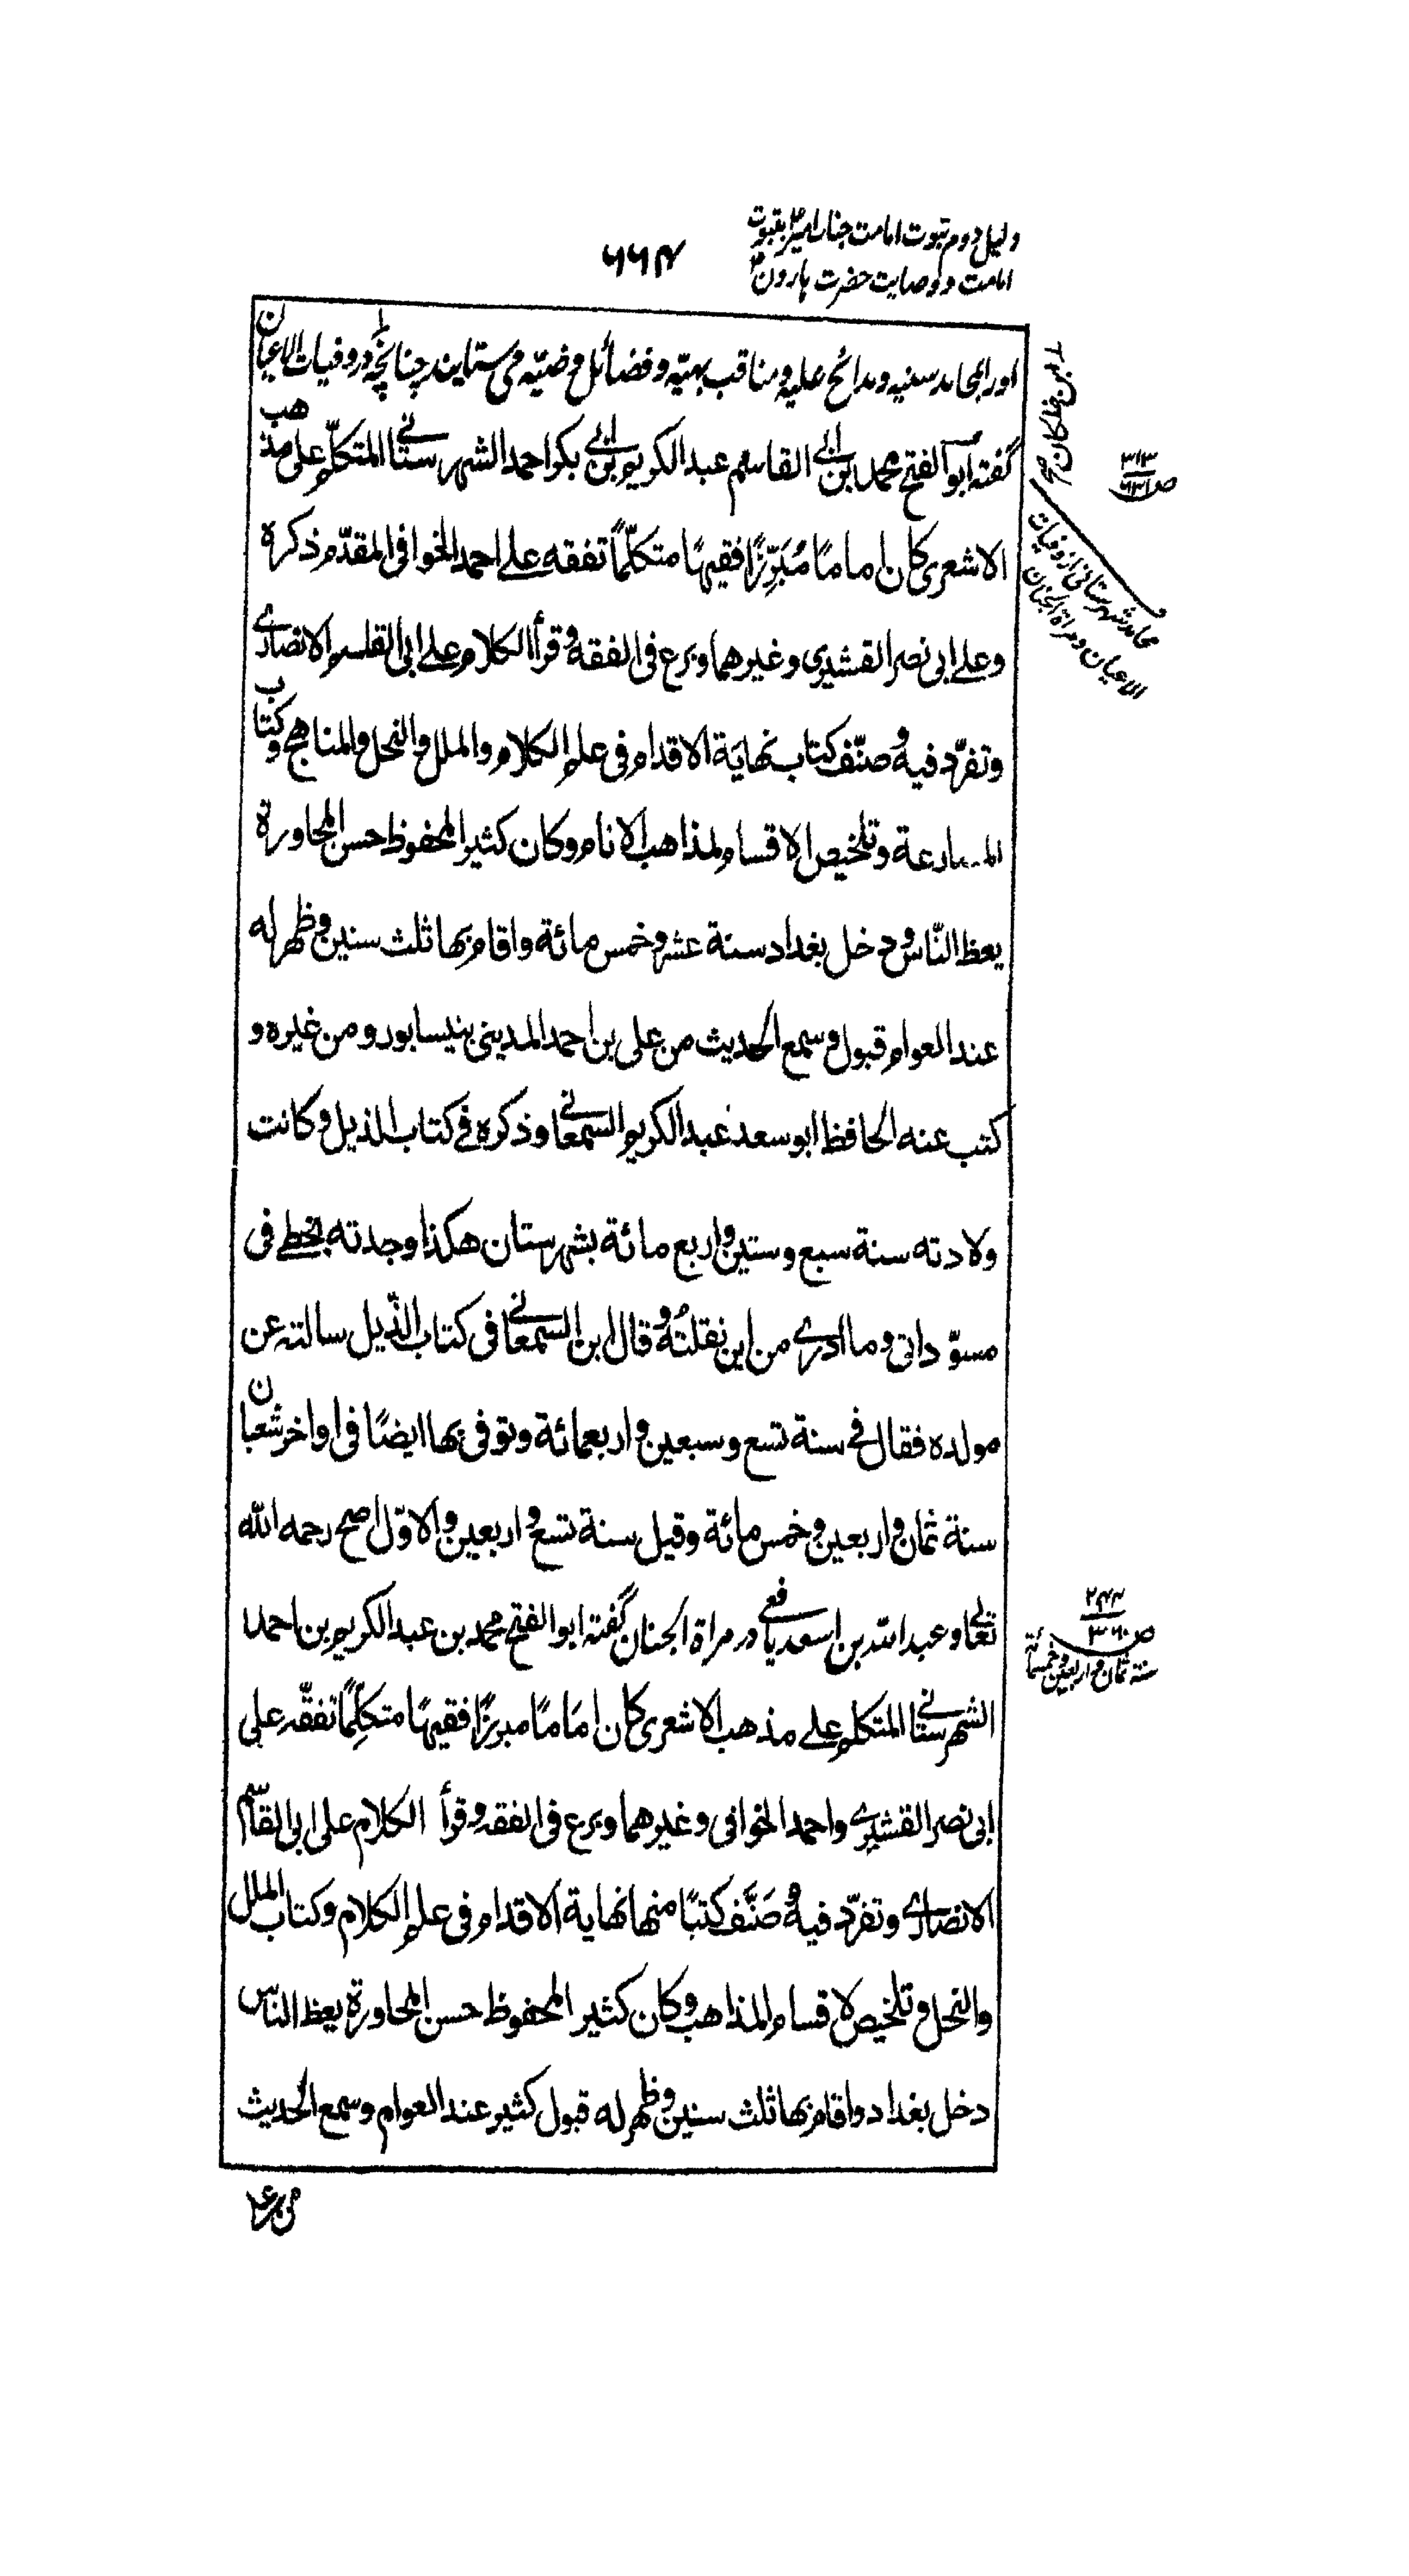 دلیل دوم ثبوت امامت جناب امیر بثبوت
امامت و وصایت حضرت هارون
۶۶۴
اورا بمحامد سنیه و مدائح علیه و مناقب بهیّه و فضائل وضیّه می ستایند چنانچه در وفیات الاعیان
گفته ابو الفتح محمد بن ابی القاسم عبد الکریم بن ابی بکر احمد الشهرستانی المتکلّم علی مذهب
الاشعری کان اماما مُبَرِّزًا فقیهًا متکلّمًا تفقه علی احمد الخوافی المقدّم ذکره
وعلی ابی نصر القشیری وغیرهما وبرع فی الفقه وقرأ الکلام علی ابی القاسم الانصاری
وتفرّد فیه وصنّف کتاب نهایة الاقدام فی علم الکلام والملل والنحل والمناهج وکتاب
المضارعة وتلخیص الاقسام لمذاهب الانام وکان کثیر المحفوظ حسن المحاورة
یعظ النّاس ودخل بغداد سنة عشر وخمس مائة واقام بها ثلث سنین وظهر له
عند العوام قبول وسمع الحدیث من علی بن احمد المدینی بنیسابور ومن غیره و
کتب عنه الحافظ ابو سعد عبد الکریم السمعانی وذکره فی کتاب الذیل وکانت
ولادته سنة سبع وستین واربع مائة بشهرستان هکذا وجدته بخطی فی
مسوّداتی وما ادری من این نقلتُه وقال ابن السمعانی فی کتاب الذّیل سالته عن
مولده فقال فی سنة تسع وسبعین واربعمائة وتوفی بها ایضًا فی اواخر شعبان
سنة ثمان واربعین وخمس مائة وقیل سنة تسع واربعین والاوّل اصح رحمه الله
تعالی وعبد الله بن اسعد یافعی در مراة الجنان گفته ابو الفتح محمد بن عبد الکریم بن احمد
الشهرستانی المتکلم علی مذهب الاشعری کان امَامًا مبرزًا فقیهًا متکلِّمًا تفقّه علی
ابی نصر القشیری واحمد الخوافی وغیرهما وبرع فی الفقه وقرأ الکلام علی ابی القاسم
الانصاری وتفرّد فیه وصَنَّف کتبًا منها نهایة الاقدام فی علم الکلام وکتاب الملل
والنحل وتلخیص الاقسام لمذاهب وکان کثیر المحفوظ حسن المحاورة یعظ الناس
دخل بغداد واقام بها ثلث سنین وظهر له قبول کثیر عند العوام وسمع الحدیث
ابن خلکان
۳۱۳
محامد شهرستانی از وفیات
الاعیان و مراة الجنان
۲۴۴
ص ۳۶۰
سنة ثمان واربعین وخمسمائة